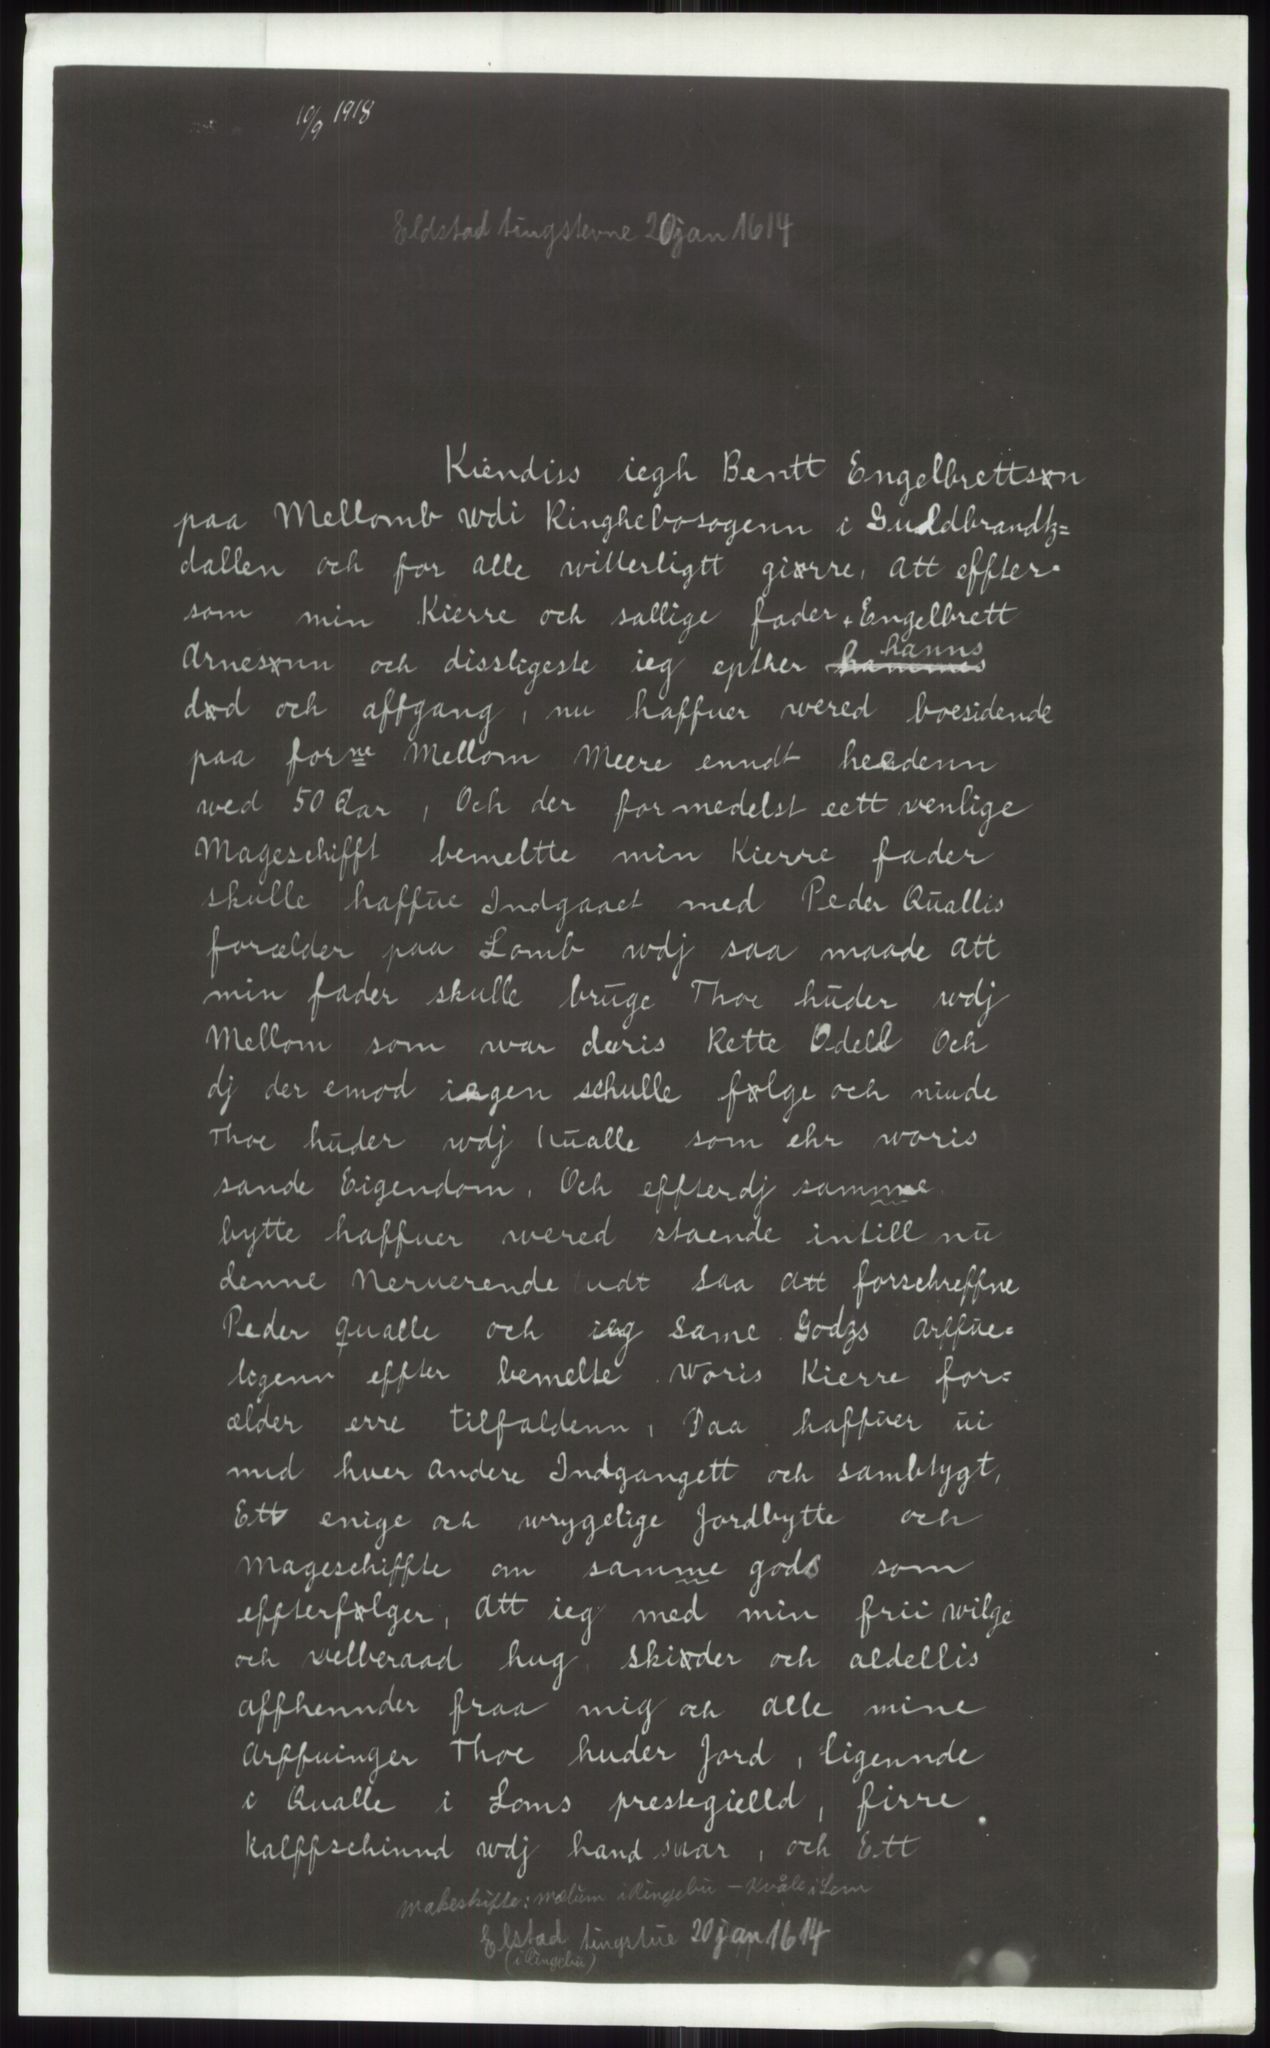 10/9 1918
Eldstad tingstevne 20 jan 1614
Kiendiss iegh Bentt Engelbrettsøn
paa Mellomb wdi Ringhebosogenn i Guldbrandtz=
dallen och for alle witterligtt giørre, att effter-
som min Kierre och sallige fader, Engelbrett
Arnesønn och dissligeste ieg epther hanns
død och affgang, nu haffuer wered boesidende
paa forne Mellom Meere enndt heedenn
wed 50 Aar, Och der formedelst eett venlige
Mageschifft bemeltte min Kierre fader
skulle haffue Indgaaet med Peder Quallis
forælder paa Lomb wdj saa maade att
min fader skulle bruge Thoe huder wdj
Mellom som war deris Rette Odell Och
dj der emod iegen schulle følge och niude
Thoe huder wdj Kualle som ehr woris
sande Eigendom. Och effterdj samme
bytte haffuer wered staende intill nu
denne Neruerende tidt saa att forschreffne
Peder Qualle och ieg same Godzs arffue-
ligenn effter bemelte woris Kierre for=
ælder erre tilfaldenn, Daa haffuer ui
med huer andere Indgangett och sambtygt,
Ett enige och wrygelige Jordbytte och
Mageschiffte om samme gods som
effterfølger, Att ieg med min frii wilge
och velberaad hug, skiøder och aldellis
affhennder fraa mig och alle mine
Arffuinger Thoe huder Jord, ligennde
i Qualle i Loms prestegielld, firre
Kalffschinnd wdj hand suar, och Ett
Makeskifte: Mælum i Ringebu - Kvåle i Lom
Elstad tingstue 20 jan 1614
(i Ringebu)